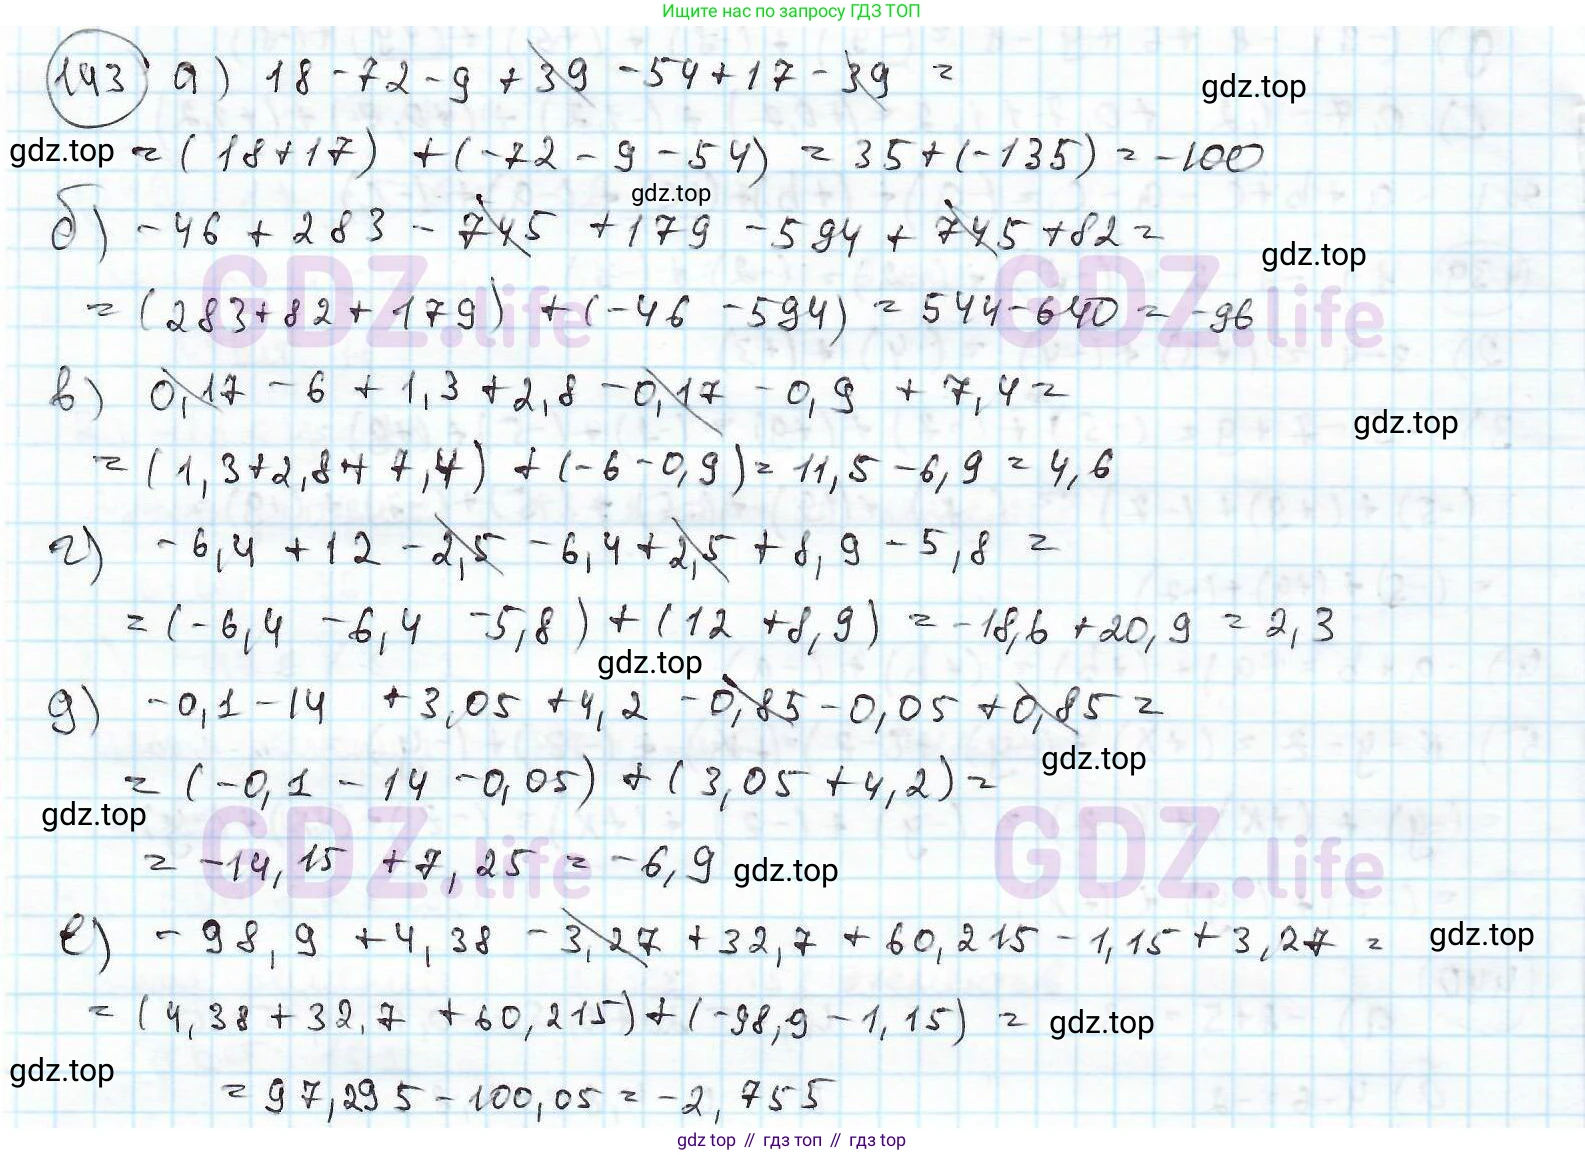 Ищите нас по запросу ГДЗ ТОП
143 а) 18 - 72 - 9 + 39 - 54 + 17 - 39 =
gdz.top
gdz.top = (18+17) + (-72 - 9 - 54) = 35 + (-135) = -100
gdz.top
б) -46 + 283 - 745 + 179 - 594 + 745 + 82 =
gdz.top
= (283 + 82 + 179) + (-46 - 594) = 544 - 640 = -96
GDZ.life GDZ.life
в) 0,17 - 6 + 1,3 + 2,8 - 0,17 - 0,9 + 7,4 =
gdz.top
= (1,3 + 2,8 + 7,4) + (-6 - 0,9) = 11,5 - 6,9 = 4,6
г) -6,4 + 12 - 2,5 - 6,4 + 2,5 + 8,9 - 5,8 =
= (-6,4 - 6,4 - 5,8) + (12 + 8,9) = -18,6 + 20,9 = 2,3
gdz.top
д) -0,1 - 14 + 3,05 + 4,2 - 0,85 - 0,05 + 0,85 =
gdz.top
= (-0,1 - 14 - 0,05) + (3,05 + 4,2) =
gdz.top
GDZ.life GDZ.life
= -14,15 + 7,25 = -6,9 gdz.top
е) -98,9 + 4,38 - 3,27 + 32,7 + 60,215 - 1,15 + 3,27 =
gdz.top
= (4,38 + 32,7 + 60,215) + (-98,9 - 1,15) = gdz.top
gdz.top
= 97,295 - 100,05 = -2,755
gdz top // гдз топ // gdz top